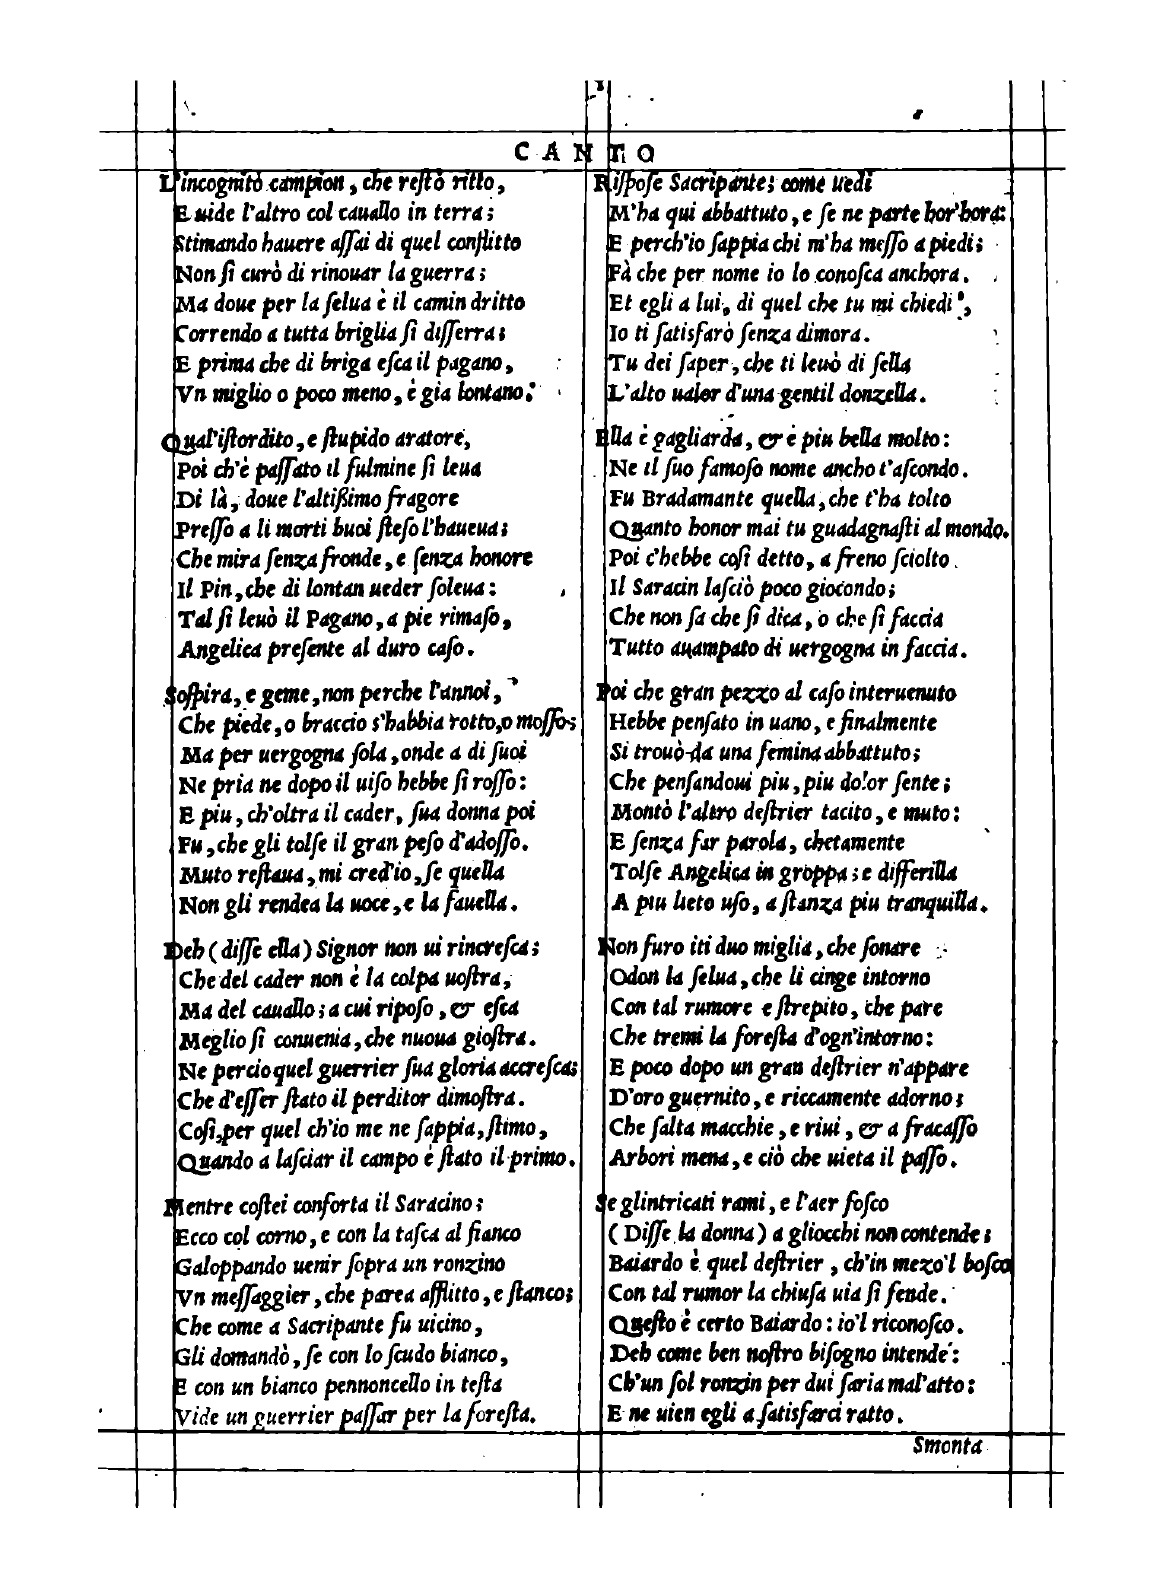 CANTO
L'incognito campion, che reſtò ritto,
E uide l'altro col cauallo in terra;
Stimando hauere aſſai di quel conflitto
Non ſi curò di rinouar la guerra;
Ma doue per la ſelua è il camin dritto
Correndo a tutta briglia ſi diſſerra;
E prima che di briga eſca il pagano,
Vn miglio o poco meno, è gia lontano.
Qual'iſtordito, e ſtupido aratore,
Poi ch'è paſſato il fulmine ſi leua
Di là, doue l'altißimo fragore
Preſſo a li morti buoi ſteſo l'haueua;
Che mira ſenza fronde, e ſenza honore
Il Pin, che di lontan ueder ſoleua:
Tal ſi leuò il Pagano, a pie rimaſo,
Angelica preſente al duro caſo.
Soſpira, e geme, non perche l'annoi,
Che piede, o braccio s'habbia rotto, o moſſo;
Ma per uergogna ſola, onde a di ſuoi
Ne pria ne dopo il uiſo hebbe ſi roſſo:
E piu, ch'oltra il cader, ſua donna poi
Fu, che gli tolſe il gran peſo d'adoſſo.
Muto reſtaua, mi cred'io, ſe quella
Non gli rendea la uoce, e la fauella.
Deh (diſſe ella) Signor non ui rincreſca;
Che del cader non è la colpa uoſtra,
Ma del cauallo; a cui ripoſo, & eſca
Meglio ſi conuenia, che nuoua gioſtra.
Ne percio quel guerrier ſua gloria accreſca;
Che d'eſſer ſtato il perditor dimoſtra.
Coſi, per quel ch'io me ne ſappia, ſtimo,
Quando a laſciar il campo è ſtato il primo.
Mentre coſtei conforta il Saracino;
Ecco col corno, e con la taſca al fianco
Galoppando uenir ſopra un ronzino
Vn meſſaggier, che parea afflitto, e ſtanco;
Che come a Sacripante fu uicino,
Gli domandò, ſe con lo ſcudo bianco,
E con un bianco pennoncello in teſta
Vide un guerrier paſſar per la foreſta.
Riſpoſe Sacripante; come uedi
M'ha qui abbattuto, e ſe ne parte hor'hora:
E perch'io ſappia chi m'ha meſſo a piedi;
Fà che per nome io lo conoſca anchora.
Et egli a lui, di quel che tu mi chiedi,
Io ti ſatisfarò ſenza dimora.
Tu dei ſaper, che ti leuò di ſella
L'alto ualor d'una gentil donzella.
Ella è gagliarda, & è piu bella molto:
Ne il ſuo famoſo nome ancho t'aſcondo.
Fu Bradamante quella, che t'ha tolto
Quanto honor mai tu guadagnaſti al mondo.
Poi c'hebbe coſi detto, a freno ſciolto
Il Saracin laſciò poco giocondo;
Che non ſa che ſi dica, o che ſi faccia
Tutto auampato di uergogna in faccia.
Poi che gran pezzo al caſo interuenuto
Hebbe penſato in uano, e finalmente
Si trouò da una femina abbattuto;
Che penſandoui piu, piu dolor ſente;
Montò l'altro deſtrier tacito, e muto:
E ſenza far parola, chetamente
Tolſe Angelica in groppa; e differilla
A piu lieto uſo, a ſtanza piu tranquilla.
Non furo iti duo miglia, che ſonare
Odon la ſelua, che li cinge intorno
Con tal rumore e ſtrepito, che pare
Che tremi la foreſta d'ogn'intorno:
E poco dopo un gran deſtrier n'appare
D'oro guernito, e riccamente adorno;
Che ſalta macchie, e riui, & a fracaſſo
Arbori mena, e ciò che uieta il paſſo.
Se glintricati rami, e l'aer foſco
(Diſſe la donna) a gliocchi non contende;
Baiardo è quel deſtrier, ch'in mezo'l boſco
Con tal rumor la chiuſa uia ſi fende.
Queſto è certo Baiardo: io'l riconoſco.
Deh come ben noſtro biſogno intende:
Ch'un ſol ronzin per dui ſaria mal'atto:
E ne uien egli a ſatisfarci ratto.
Smonta